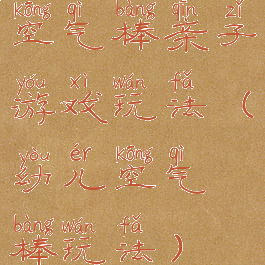 kōng qì bàng qīn zǐ
空气棒亲子
yóu xì wán fǎ
游戏玩法（
yòu ér kōng qì
幼儿空气
bàng wán fǎ
棒玩法）